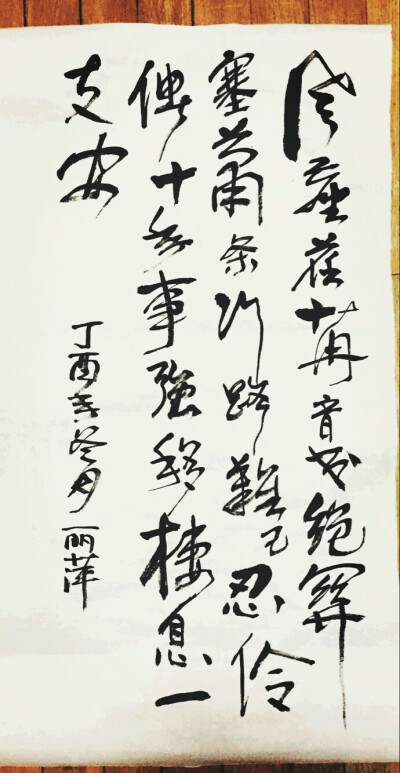 风塵荏苒音书絶關
塞蕭条行路難已忍伶
俜十年事強移棲息一
支安
丁酉年冬月丽萍